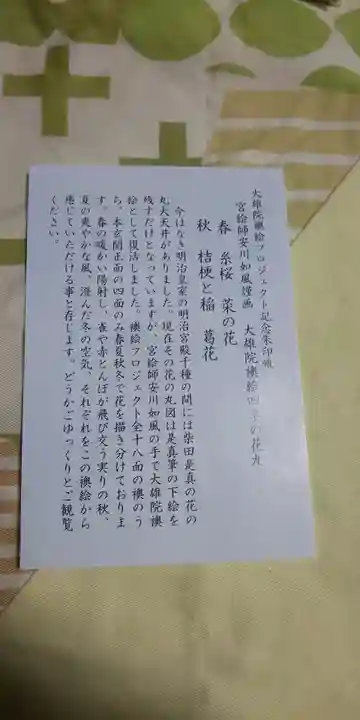 大雄院襖絵プロジェクト記念朱印帳
宮絵師安川如風謹画 大雄院襖絵四季の花丸
春 糸桜 菜の花
秋 桔梗と稲 葛花
今はなき明治皇家の明治宮殿千種の間には柴田是真の花の
丸大天井がありました。現在その花の丸図は是真筆の下絵を
残すだけとなっていますが、宮絵師安川如風の手で大雄院襖
絵として復活しました。襖絵プロジェクト全十八面の襖のう
ち、本玄関正面の四面のみ春夏秋冬で花を描き分けておりま
す。春の暖かい陽射し、雀や赤とんぼが飛び交う実りの秋、
夏の爽やかな風、澄んだ冬の空気、それぞれをこの襖絵から
感じていただける事と存じます。どうかごゆっくりとご観覧
ください。